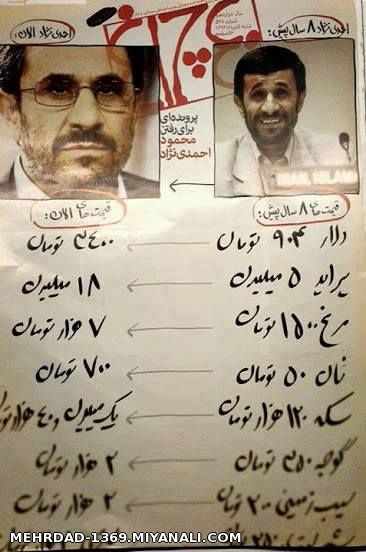 احمدی نژاد ۸ سال پیش:
احمدی نژاد الان:
چلچراغ
پرونده‌ای
برای رفتن
محمود
احمدی نژاد
قیمت های ۸ سال پیش:
قیمت های الان:
دلار ۹۰۴ تومان ← ۳۴۰۰ تومان
پراید ۵ میلیون ← ۱۸ میلیون
مرغ ۱۵۰۰ تومان ← ۷ هزار تومان
نان ۵۰ تومان ← ۷۰۰ تومان
سکه ۱۲۰ هزار تومان ← یک میلیون و ۴۰ هزار تومان
گوجه ۳۵۰ تومان ← ۲ هزار تومان
سیب زمینی ۲۰۰ تومان ← ۲ هزار تومان
MEHRDAD-1369.MIYANALI.COM